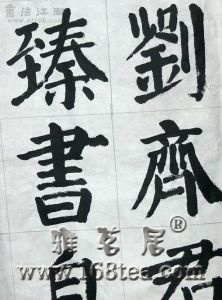 劉齊君
臻書自
雅茗居®
www.168tea.com